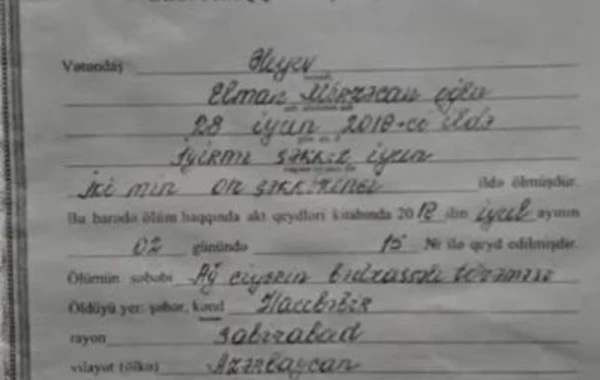 Vətəndaş Əliyev
Elman Mirzəcan oğlu
28 iyun 2018-ci ildə
iyirmi səkkiz iyun
iki min on səkkizinci ildə ölmüşdür.
Bu barədə ölüm haqqında akt qeydləri kitabında 2018 ilin iyul ayının
02 günündə 15 № ilə qeyd edilmişdir.
Ölümün səbəbi Ağ ciyərin bədxassəli törəməsi
Öldüyü yer: şəhər, kənd
rayon Sabirabad
vilayət (ölkə) Azərbaycan